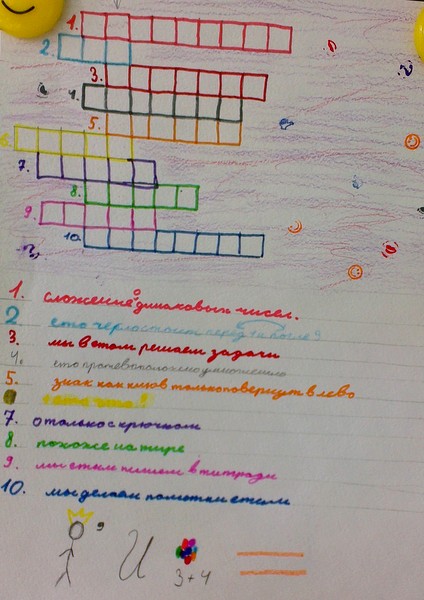 1.
2.
3.
4.
5.
6.
7.
8.
9.
10.
1. сложение одинаковых чисел.
2
3. мы в том решаем задачи
4. ето противоположно умножению
5. знак как клюв только повернут в лево
7. 0 только с крючком
8. похоже на тире
9. мы етим пишем в титради
10. мы делаем пометки етим
и
3+4